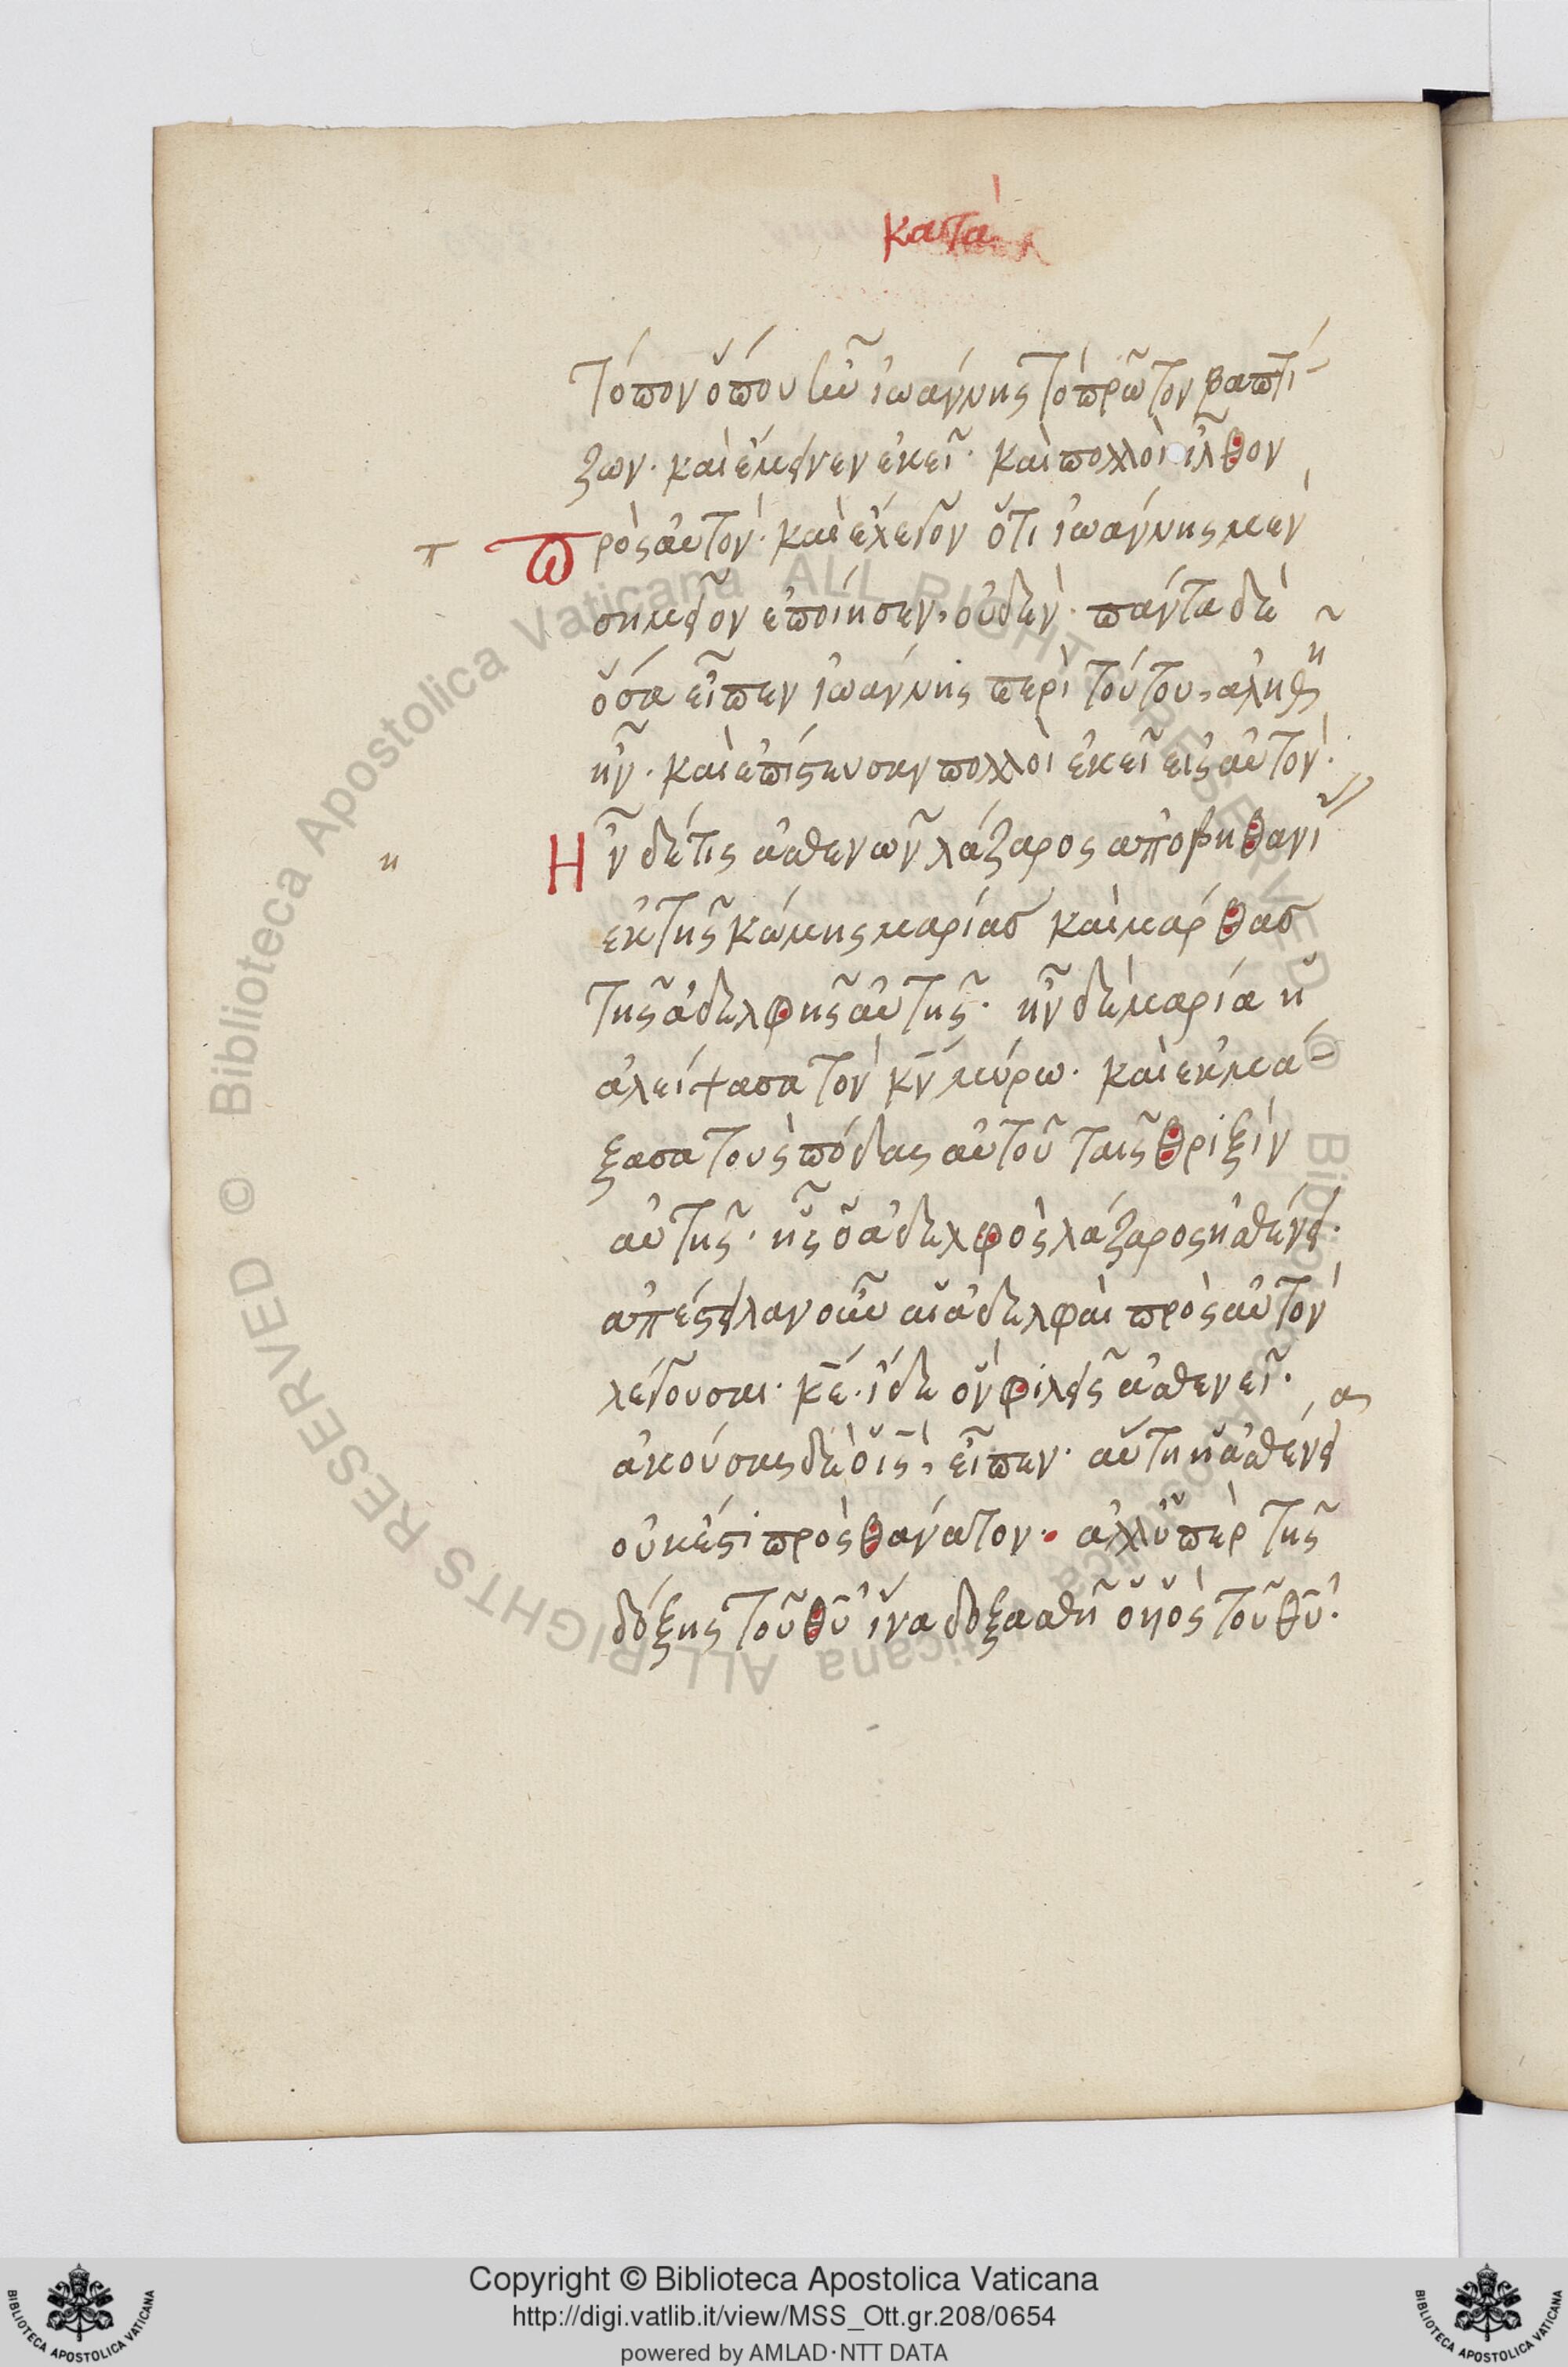 κατὰ
τόπον ὅπου ἦν ἰωάννης τὸ πρῶτον βαπτί
ζων. καὶ ἔμεινεν ἐκεῖ. καὶ πολλοὶ ἦλθον
πρὸς αὐτὸν. καὶ ἔλεγον ὅτι ἰωάννης μὲν
σημεῖον ἐποίησεν, οὐδὲν. πάντα δὲ
ὅσα εἶπεν ἰωάννης περὶ τούτου, ἀληθῆ
ἦν. καὶ ἐπίστευσαν πολλοὶ ἐκεῖ εἰς αὐτὸν.
Ἦν δέ τις ἀσθενῶν λάζαρος ἀπὸ βηθανί
ἐκ τῆς κώμης μαρίας καὶ μάρθας
τῆς ἀδελφῆς αὐτῆς. ἦν δὲ μαρία ἡ
ἀλείψασα τὸν κν̅ μύρω. καὶ ἐκμά
ξασα τοὺς πόδας αὐτοῦ ταῖς θριξὶν
αὐτῆς. ἧς ὁ ἀδελφὸς λάζαρος ἠσθένει.
ἀπέστειλαν οὖν αἱ ἀδελφαὶ πρὸς αὐτὸν
λέγουσαι. κε̅. ἴδε ὃν φιλεῖς ἀσθενεῖ.
ἀκούσας δὲ ὁ ις̅, εἶπεν. αὕτη ἡ ἀσθένεια
οὐκ ἔστι πρὸς θάνατον. ἀλλ ὑπὲρ τῆς
δόξης τοῦ θυ̅ ἵνα δοξασθῆ ὁ υἱὸς τοῦ θυ̅.
π
η
Copyright © Biblioteca Apostolica Vaticana
http://digi.vatlib.it/view/MSS_Ott.gr.208/0654
powered by AMLAD·NTT DATA
BIBLIOTECA APOSTOLICA VATICANA
BIBLIOTECA APOSTOLICA VATICANA